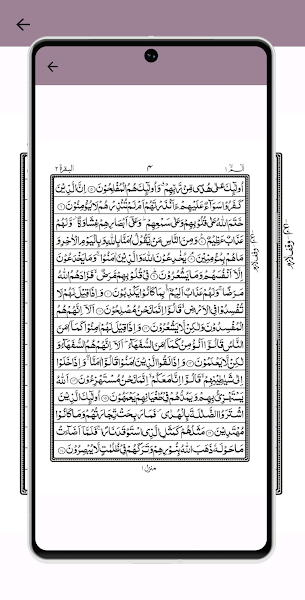 البقرة ٢
٣
الٓمّٓ ١
اُولٰٓئِكَ عَلٰى هُدًى مِّنْ رَّبِّهِمْ ۗ وَاُولٰٓئِكَ هُمُ الْمُفْلِحُوْنَ ۝ اِنَّ الَّذِيْنَ
كَفَرُوْا سَوَآءٌ عَلَيْهِمْ ءَاَنْذَرْتَهُمْ اَمْ لَمْ تُنْذِرْهُمْ لَا يُؤْمِنُوْنَ ۝
خَتَمَ اللّٰهُ عَلٰى قُلُوْبِهِمْ وَعَلٰى سَمْعِهِمْ ۗ وَعَلٰٓى اَبْصَارِهِمْ غِشَاوَةٌ ۖ وَّلَهُمْ
عَذَابٌ عَظِيْمٌ ۝ وَمِنَ النَّاسِ مَنْ يَّقُوْلُ اٰمَنَّا بِاللّٰهِ وَبِالْيَوْمِ الْاٰخِرِ وَمَا
هُمْ بِمُؤْمِنِيْنَ ۝ يُخٰدِعُوْنَ اللّٰهَ وَالَّذِيْنَ اٰمَنُوْا ۚ وَمَا يَخْدَعُوْنَ
اِلَّآ اَنْفُسَهُمْ وَمَا يَشْعُرُوْنَ ۝ فِيْ قُلُوْبِهِمْ مَّرَضٌ ۙ فَزَادَهُمُ اللّٰهُ
مَرَضًا ۚ وَلَهُمْ عَذَابٌ اَلِيْمٌ ۢ بِمَا كَانُوْا يَكْذِبُوْنَ ۝ وَاِذَا قِيْلَ لَهُمْ لَا
تُفْسِدُوْا فِى الْاَرْضِ ۙ قَالُوْٓا اِنَّمَا نَحْنُ مُصْلِحُوْنَ ۝ اَلَآ اِنَّهُمْ هُمُ
الْمُفْسِدُوْنَ وَلٰكِنْ لَّا يَشْعُرُوْنَ ۝ وَاِذَا قِيْلَ لَهُمْ اٰمِنُوْا كَمَآ اٰمَنَ
النَّاسُ قَالُوْٓا اَنُؤْمِنُ كَمَآ اٰمَنَ السُّفَهَآءُ ۗ اَلَآ اِنَّهُمْ هُمُ السُّفَهَآءُ وَ
لٰكِنْ لَّا يَعْلَمُوْنَ ۝ وَاِذَا لَقُوا الَّذِيْنَ اٰمَنُوْا قَالُوْٓا اٰمَنَّا ۖ وَاِذَا خَلَوْا
اِلٰى شَيٰطِيْنِهِمْ ۙ قَالُوْٓا اِنَّا مَعَكُمْ ۙ اِنَّمَا نَحْنُ مُسْتَهْزِءُوْنَ ۝ اَللّٰهُ
يَسْتَهْزِئُ بِهِمْ وَيَمُدُّهُمْ فِيْ طُغْيَانِهِمْ يَعْمَهُوْنَ ۝ اُولٰٓئِكَ الَّذِيْنَ
اشْتَرَوُا الضَّلٰلَةَ بِالْهُدٰى ۖ فَمَا رَبِحَتْ تِّجَارَتُهُمْ وَمَا كَانُوْا
مُهْتَدِيْنَ ۝ مَثَلُهُمْ كَمَثَلِ الَّذِى اسْتَوْقَدَ نَارًا ۚ فَلَمَّآ اَضَآءَتْ
مَا حَوْلَهٗ ذَهَبَ اللّٰهُ بِنُوْرِهِمْ وَتَرَكَهُمْ فِيْ ظُلُمٰتٍ لَّا يُبْصِرُوْنَ ۝
منزل ١